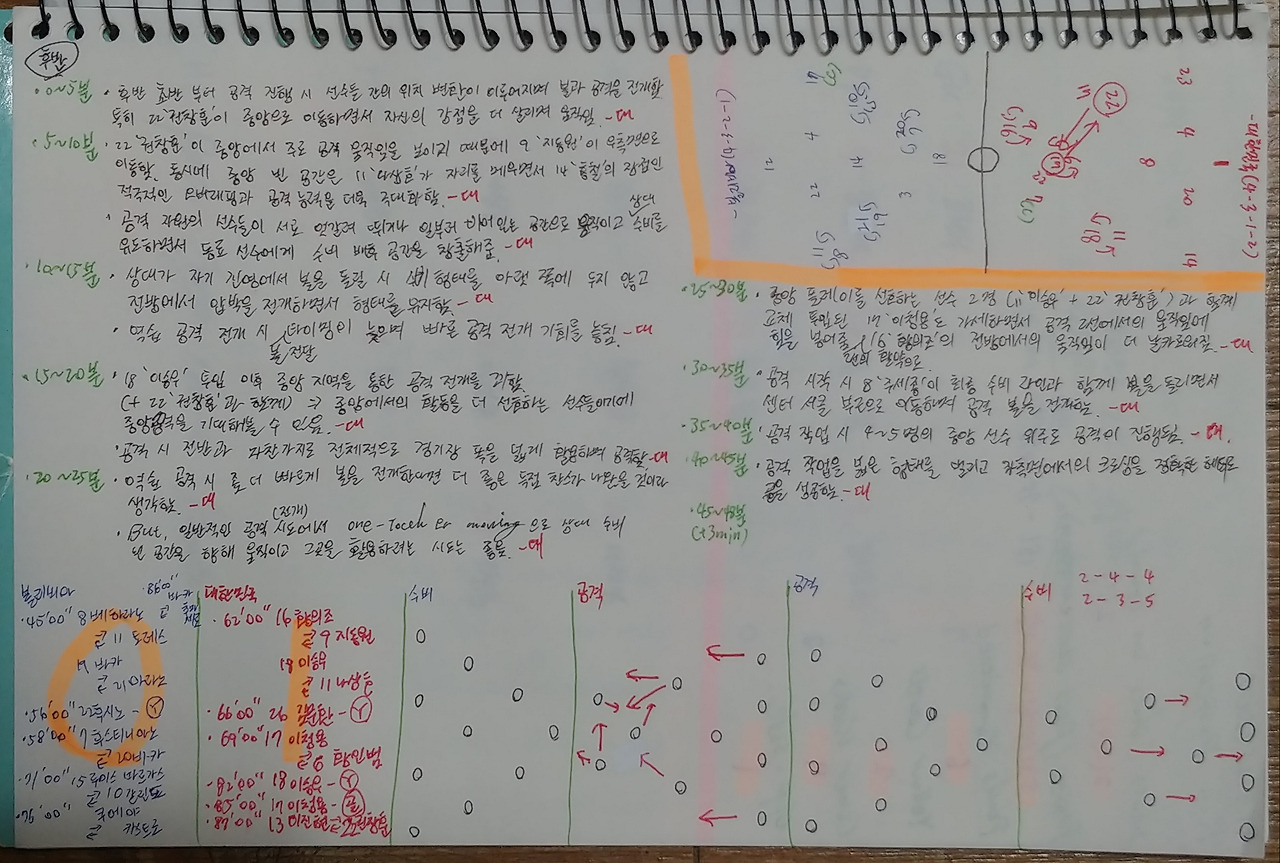 후반
· 0~5분 · 후반 초반 부터 공격 진행 시 선수들 간의 위치 변환이 이루어지며 볼과 공격을 전개함
특히 22 '권창훈'이 중앙으로 이동하면서 자신의 강점을 더 살리며 움직임. - 대
· 5~10분 · 22 '권창훈'이 중앙에서 주로 공격 움직임을 보이기 때문에 9 '지동원'이 우측면으로
이동함. 동시에 중앙 빈 공간은 11 '나상호'가 자리를 메우면서 14 '홍철'의 장점인
적극적인 오버래핑과 공격 능력을 더욱 극대화함. - 대
· 공격 자원의 선수들이 서로 엇갈려 뛰거나 일부러 비어있는 공간으로 움직이고 상대 수비를
유도하면서 동료 선수에게 수비 배후 공간을 창출해줌. - 대
· 10~15분 · 상대가 자기 진영에서 볼을 돌릴 시 수비 형태를 아랫 쪽에 두지 않고
전방에서 압박을 전개하면서 형태를 유지함. - 대
· 역습 공격 전개 시 볼 전달 타이밍이 늦으며 빠른 공격 전개 기회를 놓침. - 대
· 15~20분 · 18 '이승우' 투입 이후 중앙 지역을 통한 공격 전개를 꾀함
(+ 22 '권창훈'과 함께) → 중앙에서의 활동을 더 선호하는 선수들이기에
중앙공격을 기대해볼 수 있음. - 대
· 공격 시 전반과 마찬가지로 전체적으로 경기장 폭을 넓게 활용하며 공격함 - 대
· 20~25분 · 역습 공격 시 좀 더 빠르게 볼을 전개한다면 더 좋은 득점 찬스가 나왔을 것이라
생각함. - 대
· But, 일반적인 공격(전개) 시도에서 one-Touch moving으로 상대 수비
빈 공간을 향해 움직이고 그곳을 활용하려는 시도는 좋음. - 대
- 대한민국 (4-3-1-2)
23 4 20 14
1
8
22
11
18
9
16
17
(1-2-3-4)
18
3
14
4
22
21
· 25~30분 · 중앙 플레이를 선호하는 선수 2명 ('이승우' + 22 '권창훈')과 함께
교체 투입된 17 '이청용'도 가세하면서 공격 2선에서의 움직임에
힘을 넣어줌 / 16 '황의조'의 전방에서의 움직임이 더 날카로워짐. - 대
· 30~35분 · 공격 시작 시 8 '주세종'이 최종 수비 라인과 함께 볼을 돌리면서
센터 서클 부근으로 이동하며 공격 볼을 전개함. - 대
· 35~40분 · 공격 작업 시 4~5명의 중앙 선수 위주로 공격이 진행됨. - 대.
· 40~45분 · 공격 작업을 넓은 형태로 벌리고 좌측면에서의 크로싱을 정확한 헤더로
골을 성공함. - 대
· 45~48분
(+3min)
볼리비아
86'00"
바카
· 45'00" 8 베하라노
⇄ 11 토레스
19 바카
⇄ 21 아라노
· 56'00" 22 - Y
· 58'00" 7 후스티니아노
⇄ 20 바카
· 71'00" 15 루이스 바르가스
⇄ 10 갈린도
· 76'00"
⇄ 카스트로
대한민국
· 62'00" 16 황의조
⇄ 9 지동원
18 이승우
⇄ 11 나상호
· 66'00" 26 김문환 - Y
· 69'00" 17 이청용
⇄ 6 황인범
· 82'00" 18 이승우 - Y
· 85'00" 17 이청용 - 골
· 87'00" 13 이진현 ⇄ 22 권창훈
수비
공격
공격
수비
2 - 4 - 4
2 - 3 - 5